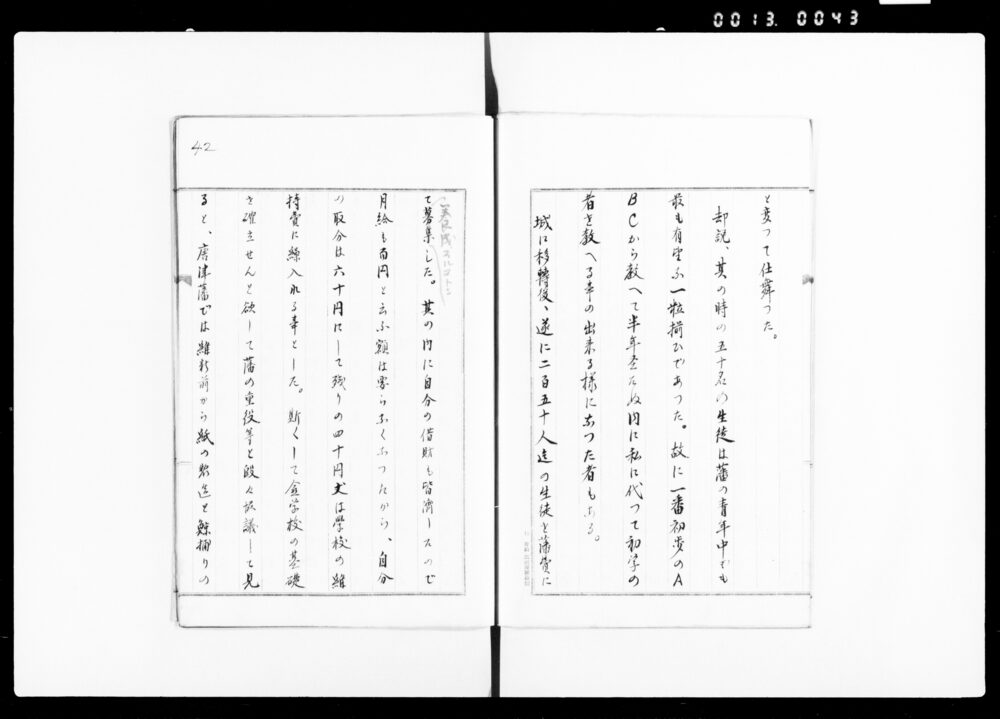 0013.0043
と変つて仕舞つた。
却説、其の時の五十名の生徒は藩の青年中でも
最も有望な一粒揃ひであつた。故に一番初歩のA
BCから教へて半年立たぬ内に私に代つて初学の
者を教へる事の出来る様になつた者もある。
城に移轉後、遂に二百五十人迄の生徒を藩費に
42
て募集した。其の内に自分の借財も皆済したので
月給も百円と云ふ額は要らなくなつたから、自分
の取分は六十円にして残りの四十円丈は學校の維
持費に繰入れる事とした。斯くして金学校の基礎
を確立せんと欲して藩の重役等と段々協議して見
ると、唐津藩では維新前から紙の製造と鯨捕りの